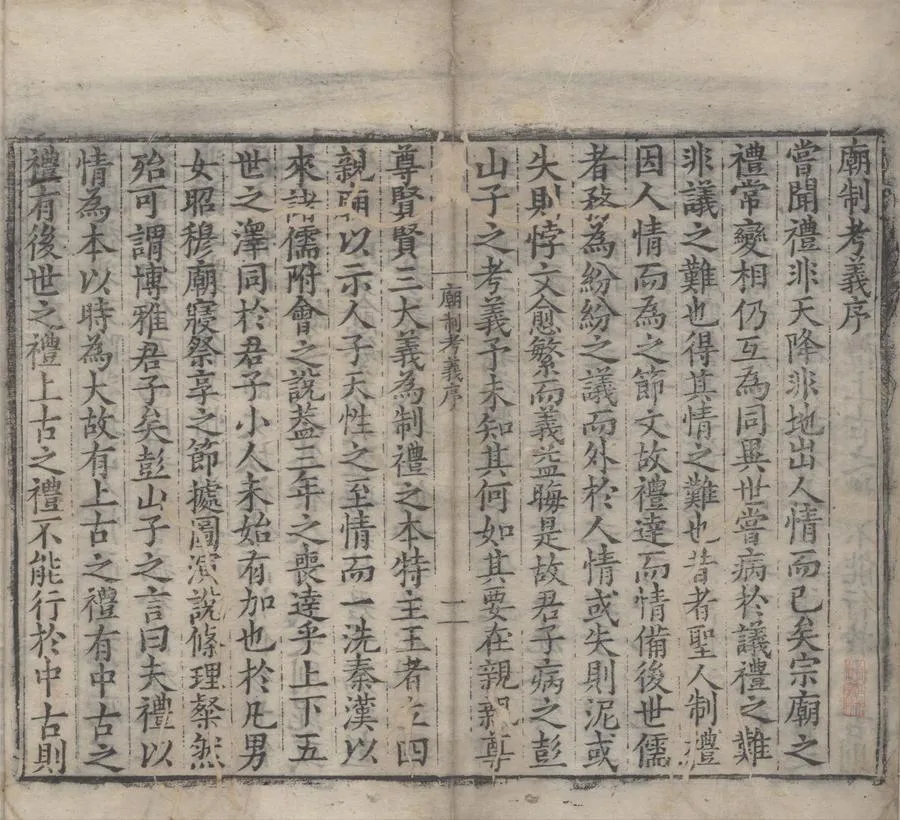 廟制考義序
嘗聞禮非天降非地出人情而已矣宗廟之
禮常變相仍互為同異世嘗病於議禮之難
非議之難也得其情之難也昔者聖人制禮
因人情而為之節文故禮達而情備後世儒
者務為紛紛之議而外於人情或失則泥或
失則悖文愈繁而義益晦是故君子病之彭
山子之考義予未知其何如其要在親親尊
廟制考義序
一
尊賢賢三大義為制禮之本特主王者立四
親廟以示人子天性之至情而一洗秦漢以
來諸儒附會之說蓋三年之喪達乎上下五
世之澤同於君子小人未始有加也於凡男
女昭穆廟寢祭享之節據圖演說條理粲然
殆可謂博雅君子矣彭山子之言曰夫禮以
情為本以時為大故有上古之禮有中古之
禮有後世之禮上古之禮不能行於中古則